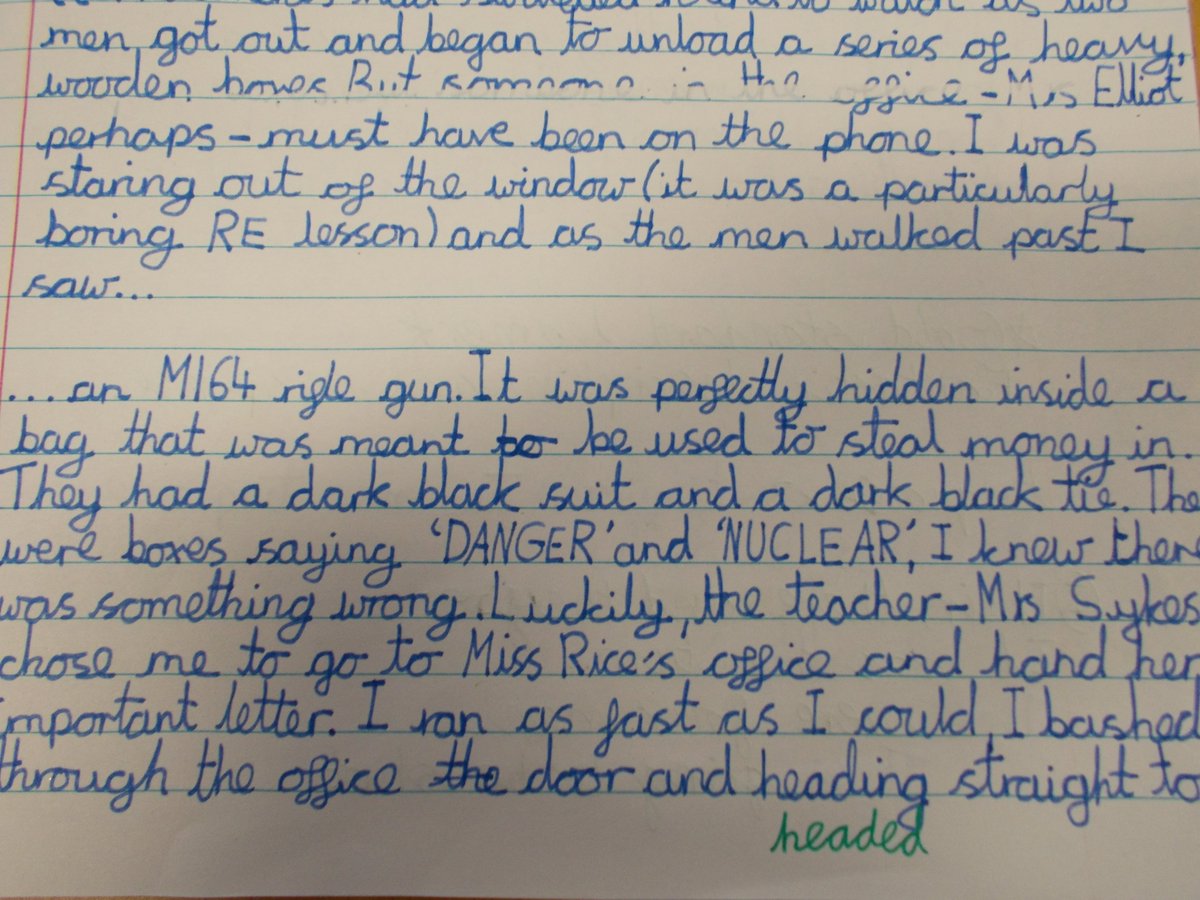 men got out and began to unload a series of heavy,
wooden boxes But someone in the office - Mrs Elliot
perhaps - must have been on the phone. I was
staring out of the window (it was a particularly
boring RE lesson) and as the men walked past I
saw...
....an M164 rifle gun. It was perfectly hidden inside a
bag that was meant to be used to steal money in.
They had a dark black suit and a dark black tie. The
were boxes saying 'DANGER' and 'NUCLEAR', I knew there
was something wrong. Luckily, the teacher - Mrs Sykes
chose me to go to Miss Rice's office and hand her
important letter. I ran as fast as I could, I bashed
through the office the door and heading straight to
headed